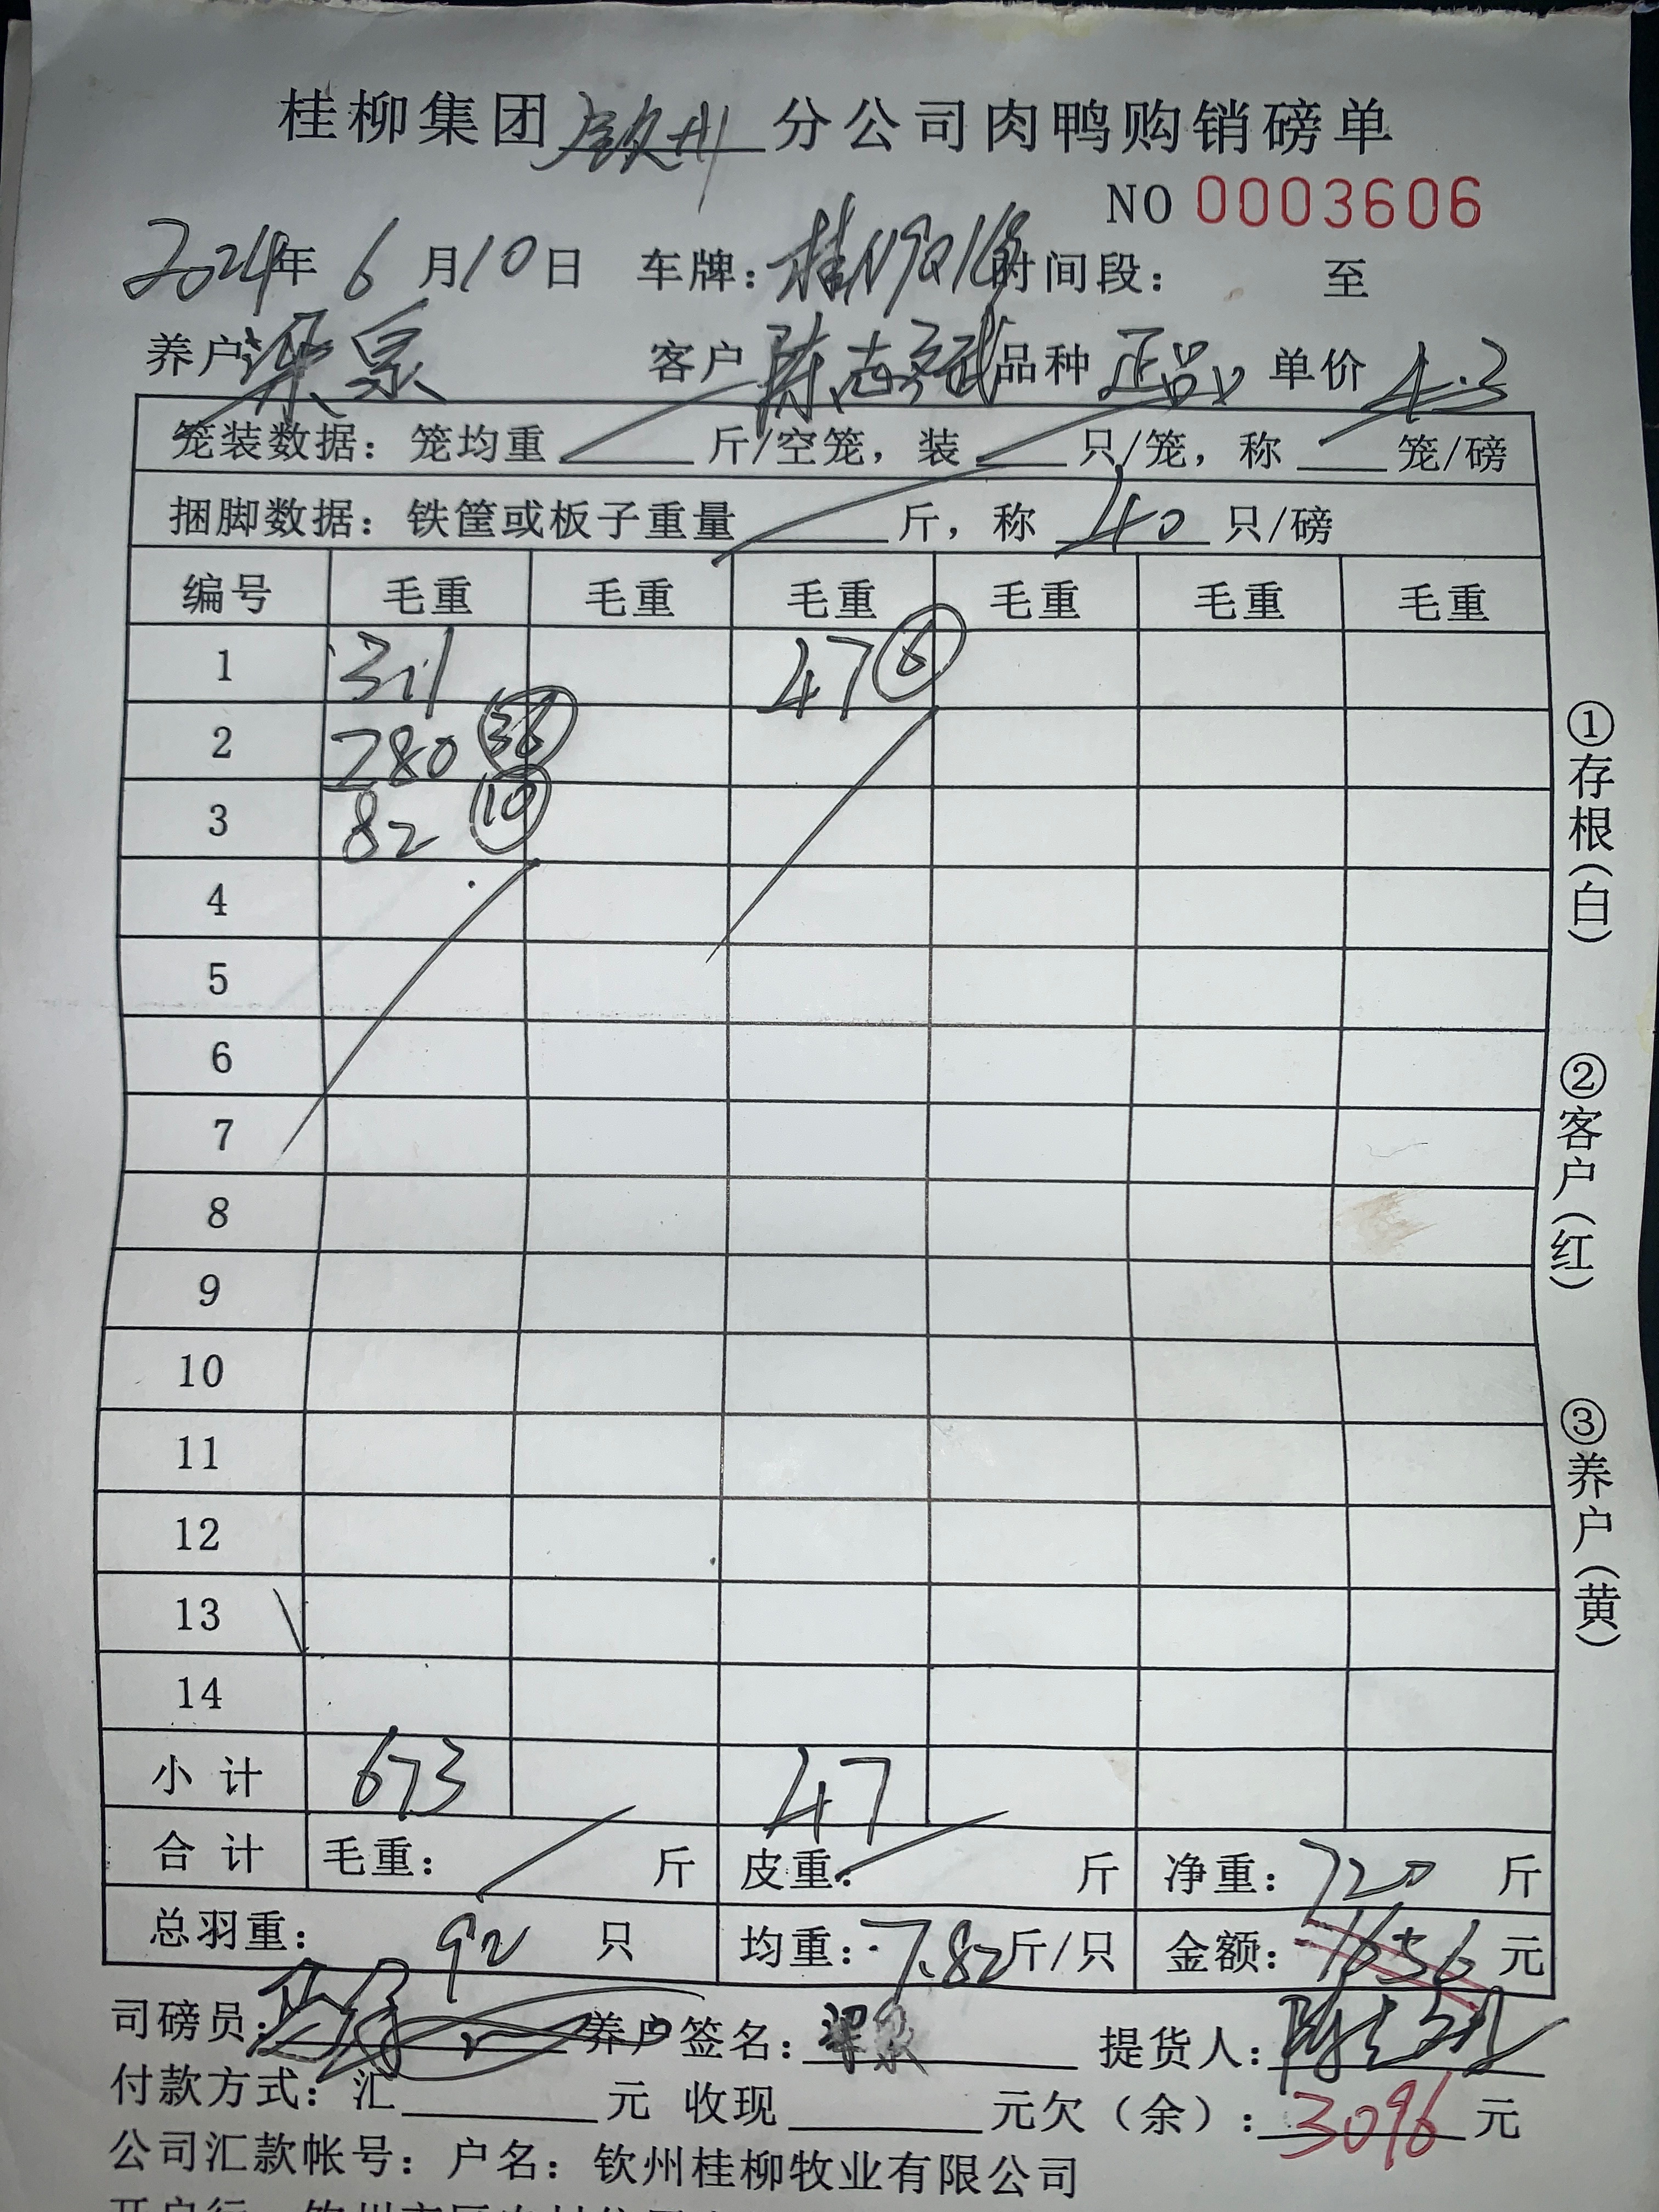 桂柳集团 钦州 分公司肉鸭购销磅单
NO 0003606
2024年 6 月 10 日 车牌: 桂N9Q16 时间段: 至
养户 梁泉 客户 陈志 品种 正品 单价 4.3
笼装数据: 笼均重 斤/空笼, 装 只/笼, 称 笼/磅
捆脚数据: 铁筐或板子重量 斤, 称 40 只/磅
编号 毛重 毛重 毛重 毛重 毛重 毛重
1 311 47 ⑥
2 280 36
3 82 ⑩
4
5
6
7
8
9
10
11
12
13
14
小计 673 47
合计 毛重: 斤 皮重: 斤 净重: 720 斤
总羽重: 92 只 均重: 7.82 斤/只 金额: 1656 元
司磅员: 养户签名: 梁泉 提货人:
付款方式: 汇 元 收现 元欠(余): 3096 元
公司汇款帐号: 户名: 钦州桂柳牧业有限公司
①存根(白)
②客户(红)
③养户(黄)